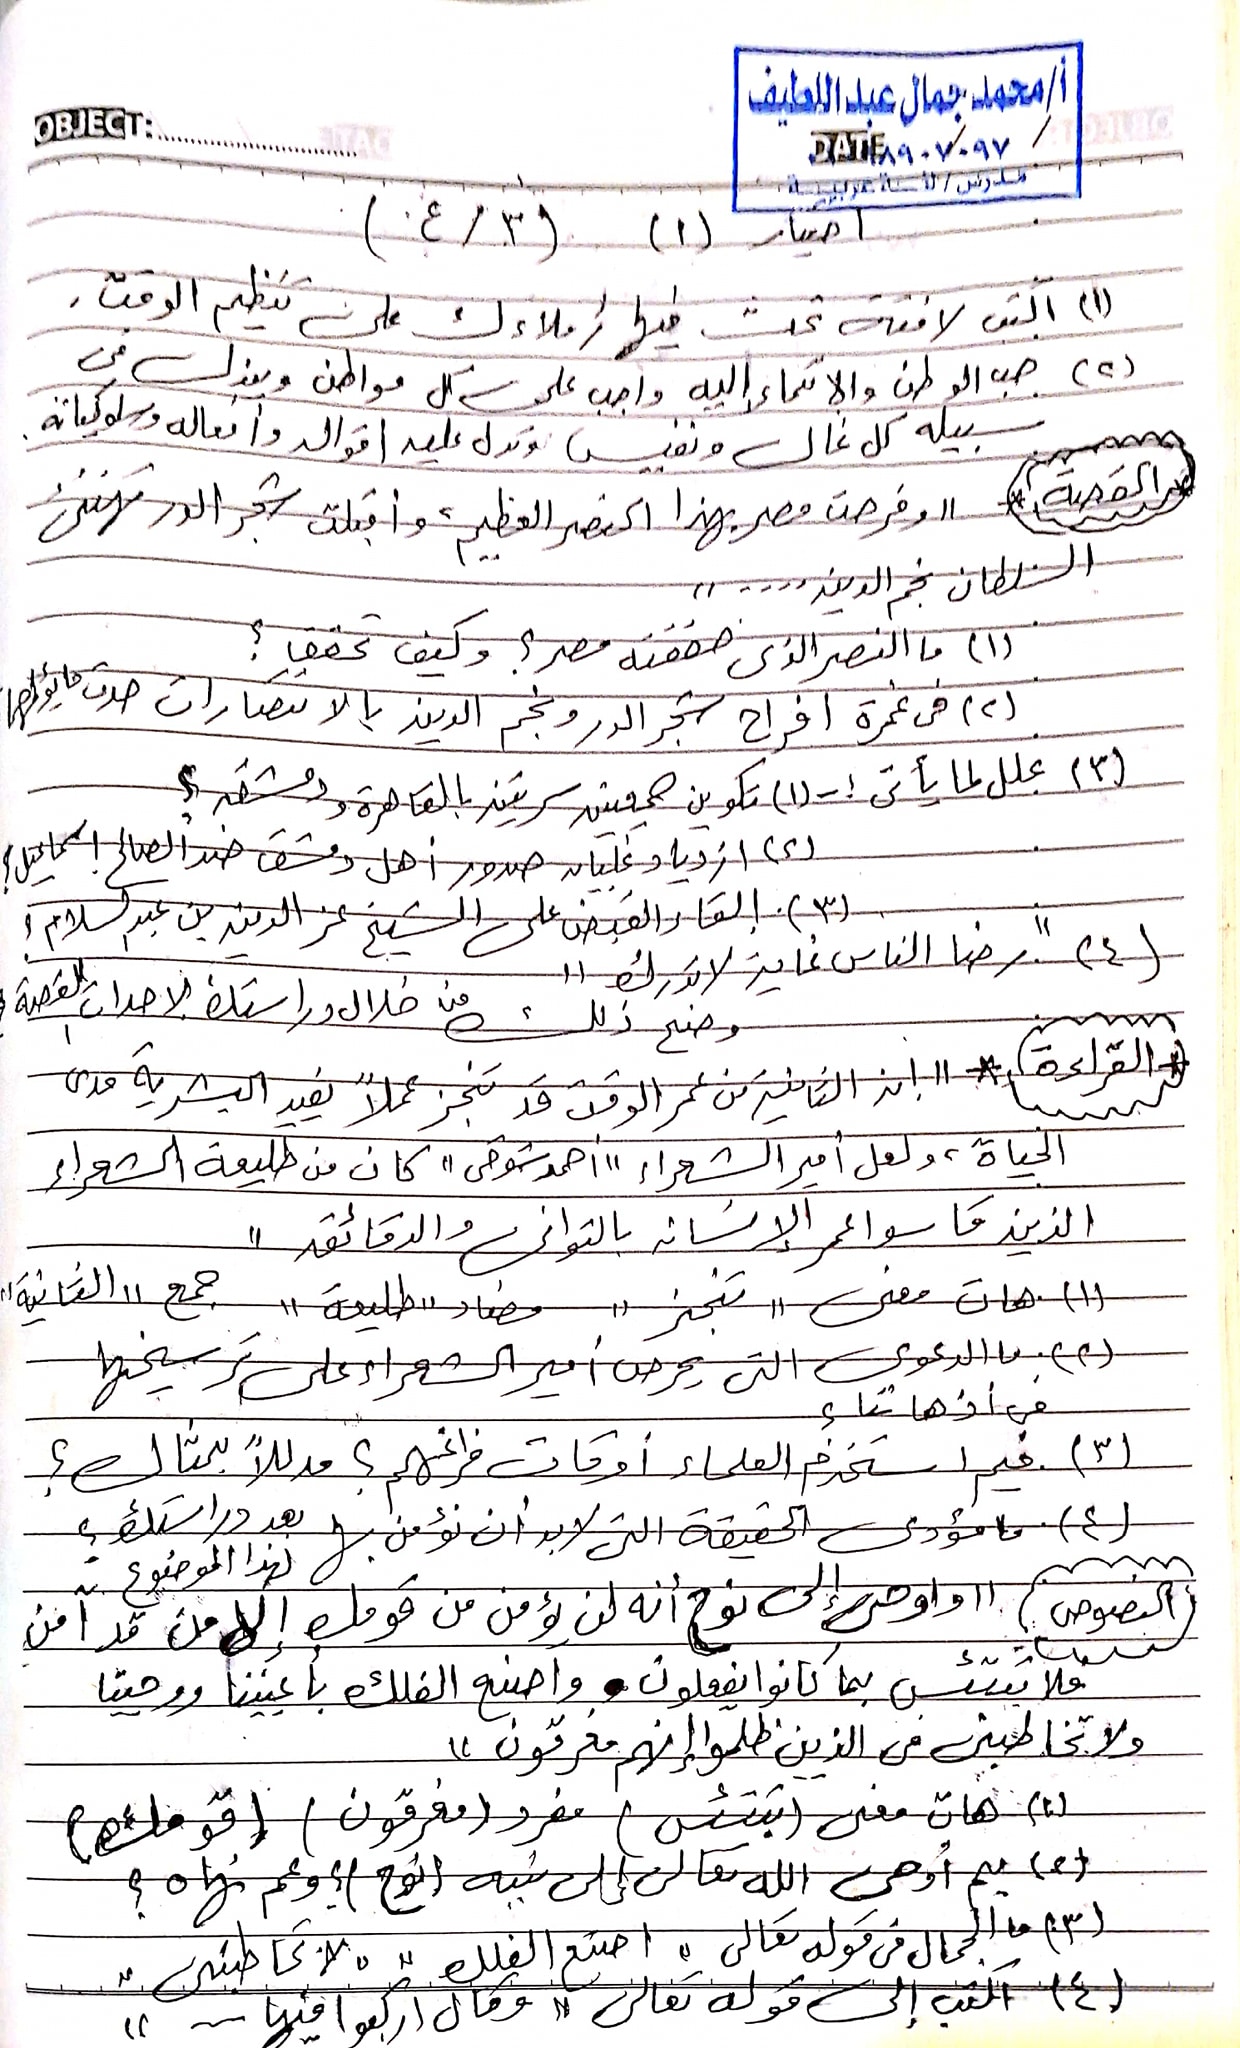 OBJECT:
أ/محمد جمال عبد اللطيف
DATE
مدرس/لغة عربية
اختبار (١) (٣/٤)
(١) اكتب لافتة تحث فيها زملاءك على تنظيم الوقت.
(٢) حب الوطن والانتماء إليه واجب على كل مواطن ويبذل في
سبيله كل غال ونفيس وتدل عليه أقواله وأفعاله وسلوكياته.
* القصة * "وفرحت مصر بهذا النصر العظيم، وأقبلت شجر الدر تهنئ
السلطان نجم الدين ...."
(١) ما النصر الذى حققته مصر؟ وكيف تحقق؟
(٢) فى غمرة افراح شجر الدر ونجم الدين بالانتصارات حدث ما يؤلمهما
(٣) علل لما يأتى :- (١) تكوين جمعيتين سريتين بالقاهرة ودمشق؟
(٢) ازدياد غليان صدور أهل دمشق ضد الصالح إسماعيل؟
(٣) إلقاء القبض على الشيخ عز الدين بن عبد السلام؟
(٤) "رضا الناس غاية لا تدرك"
وضح ذلك من خلال دراستك لأحداث القصة؟
* القراءة * "إن الثانية من عمر الوقت قد تنجز عملاً يفيد البشرية مدى
الحياة، ولعل أمير الشعراء "أحمد شوقى" كان من طليعة الشعراء
الذين قاسوا عمر الإنسان بالثوانى والدقائق"
(١) هات معنى "تنجز" مضاد "طليعة" جمع "الثانية"
(٢) ما الدعوى التى يحرص أمير الشعراء على ترسيخها
فى أذهاننا؟
(٣) فيم استخدم العلماء أوقات فراغهم؟ مدللاً بمثال؟
(٤) ما مؤدى الحقيقة التى لابد أن نؤمن بها بعد دراستك
لهذا الموضوع؟
النصوص "وأوحى إلى نوح أنه لن يؤمن من قومك إلا من قد آمن
فلا تبتئس بما كانوا يفعلون • واصنع الفلك بأعيننا ووحينا
ولا تخاطبنى فى الذين ظلموا إنهم مغرقون"
(١) هات معنى (تبتئس) مفرد (مغرقون) (قومك)
(٢) بم أوحى الله تعالى إلى نبيه (نوح)؟ وعم نهاه؟
(٣) ما الجمال فى قوله تعالى "اصنع الفلك" "لا تخاطبنى"
(٤) اكتب إلى قوله تعالى "وقال اركبوا فيها ..."